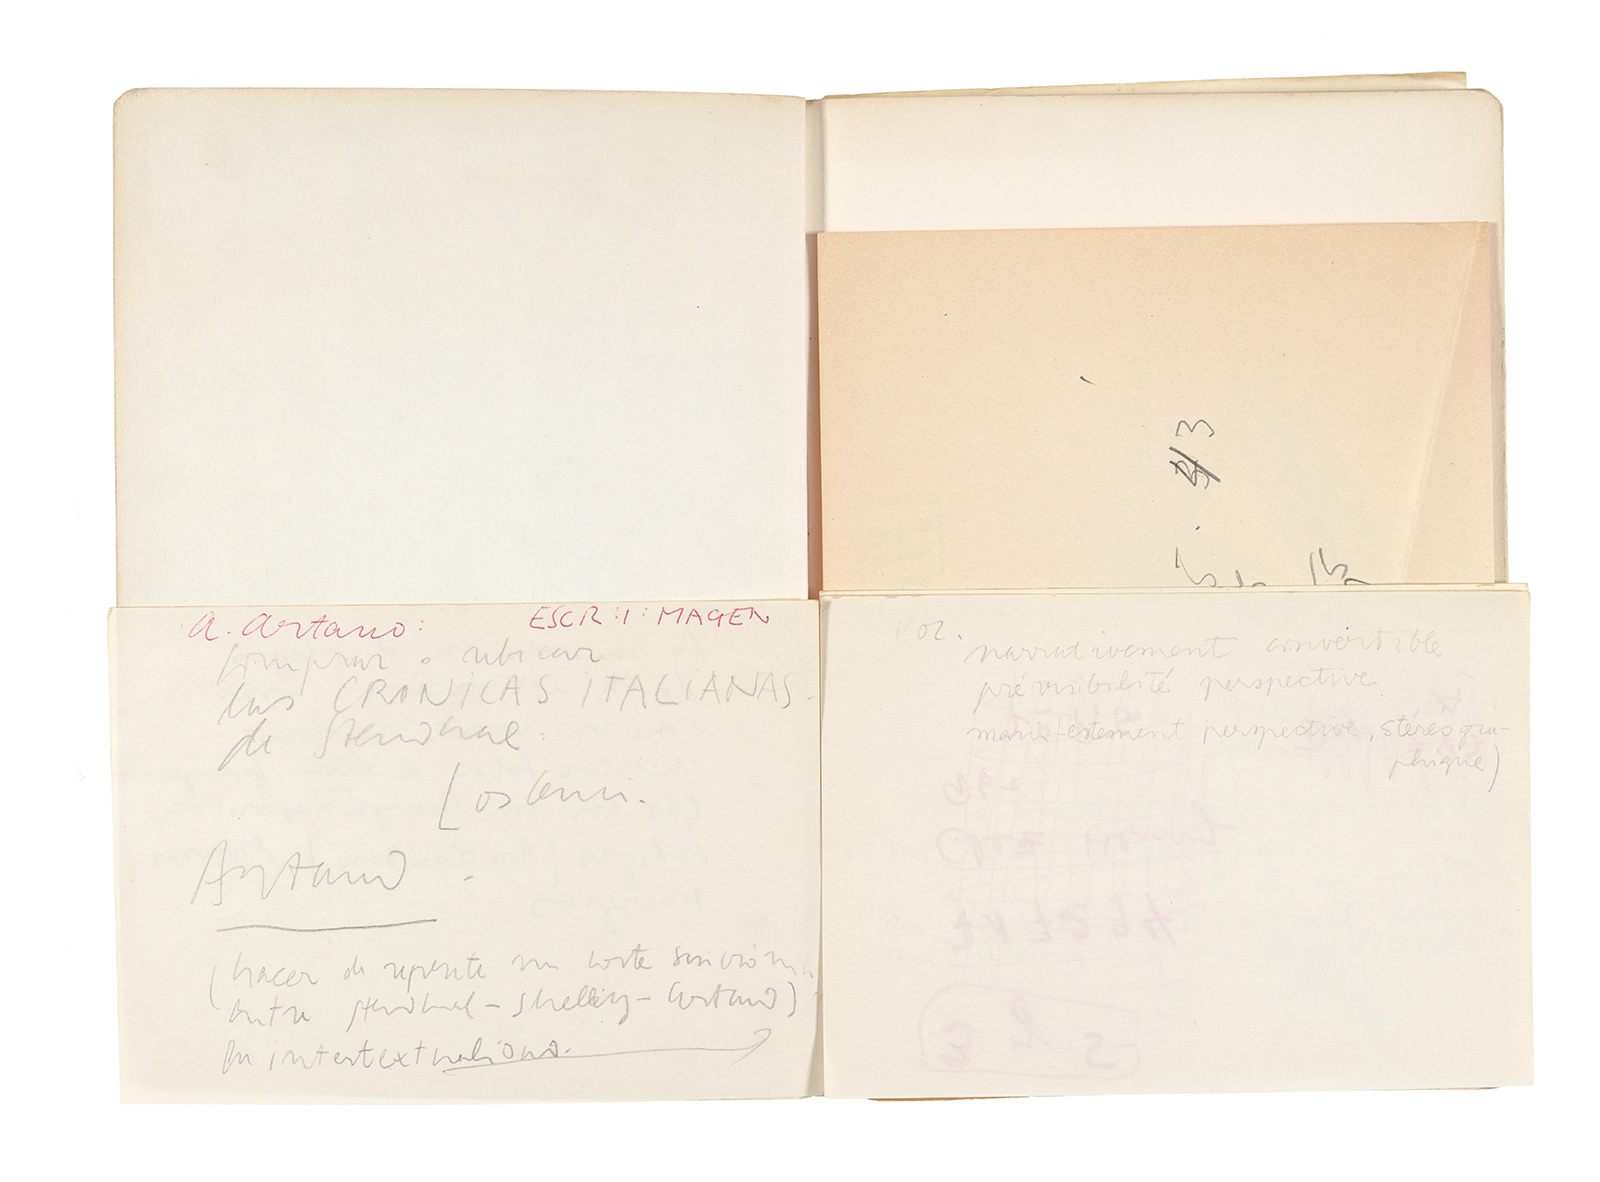 A. Artano: ESCR:I:MAGEN
comprar o ubicar
las CRONICAS ITALIANAS
de Stendhal
Artaud
(hacer de repente un corte
entre Stendhal – Shelley – Artaud)
en intertext
3
Vol.
narrativement convertible
prévisibilité perspective
manifestement perspective, stéréogra-
phique)